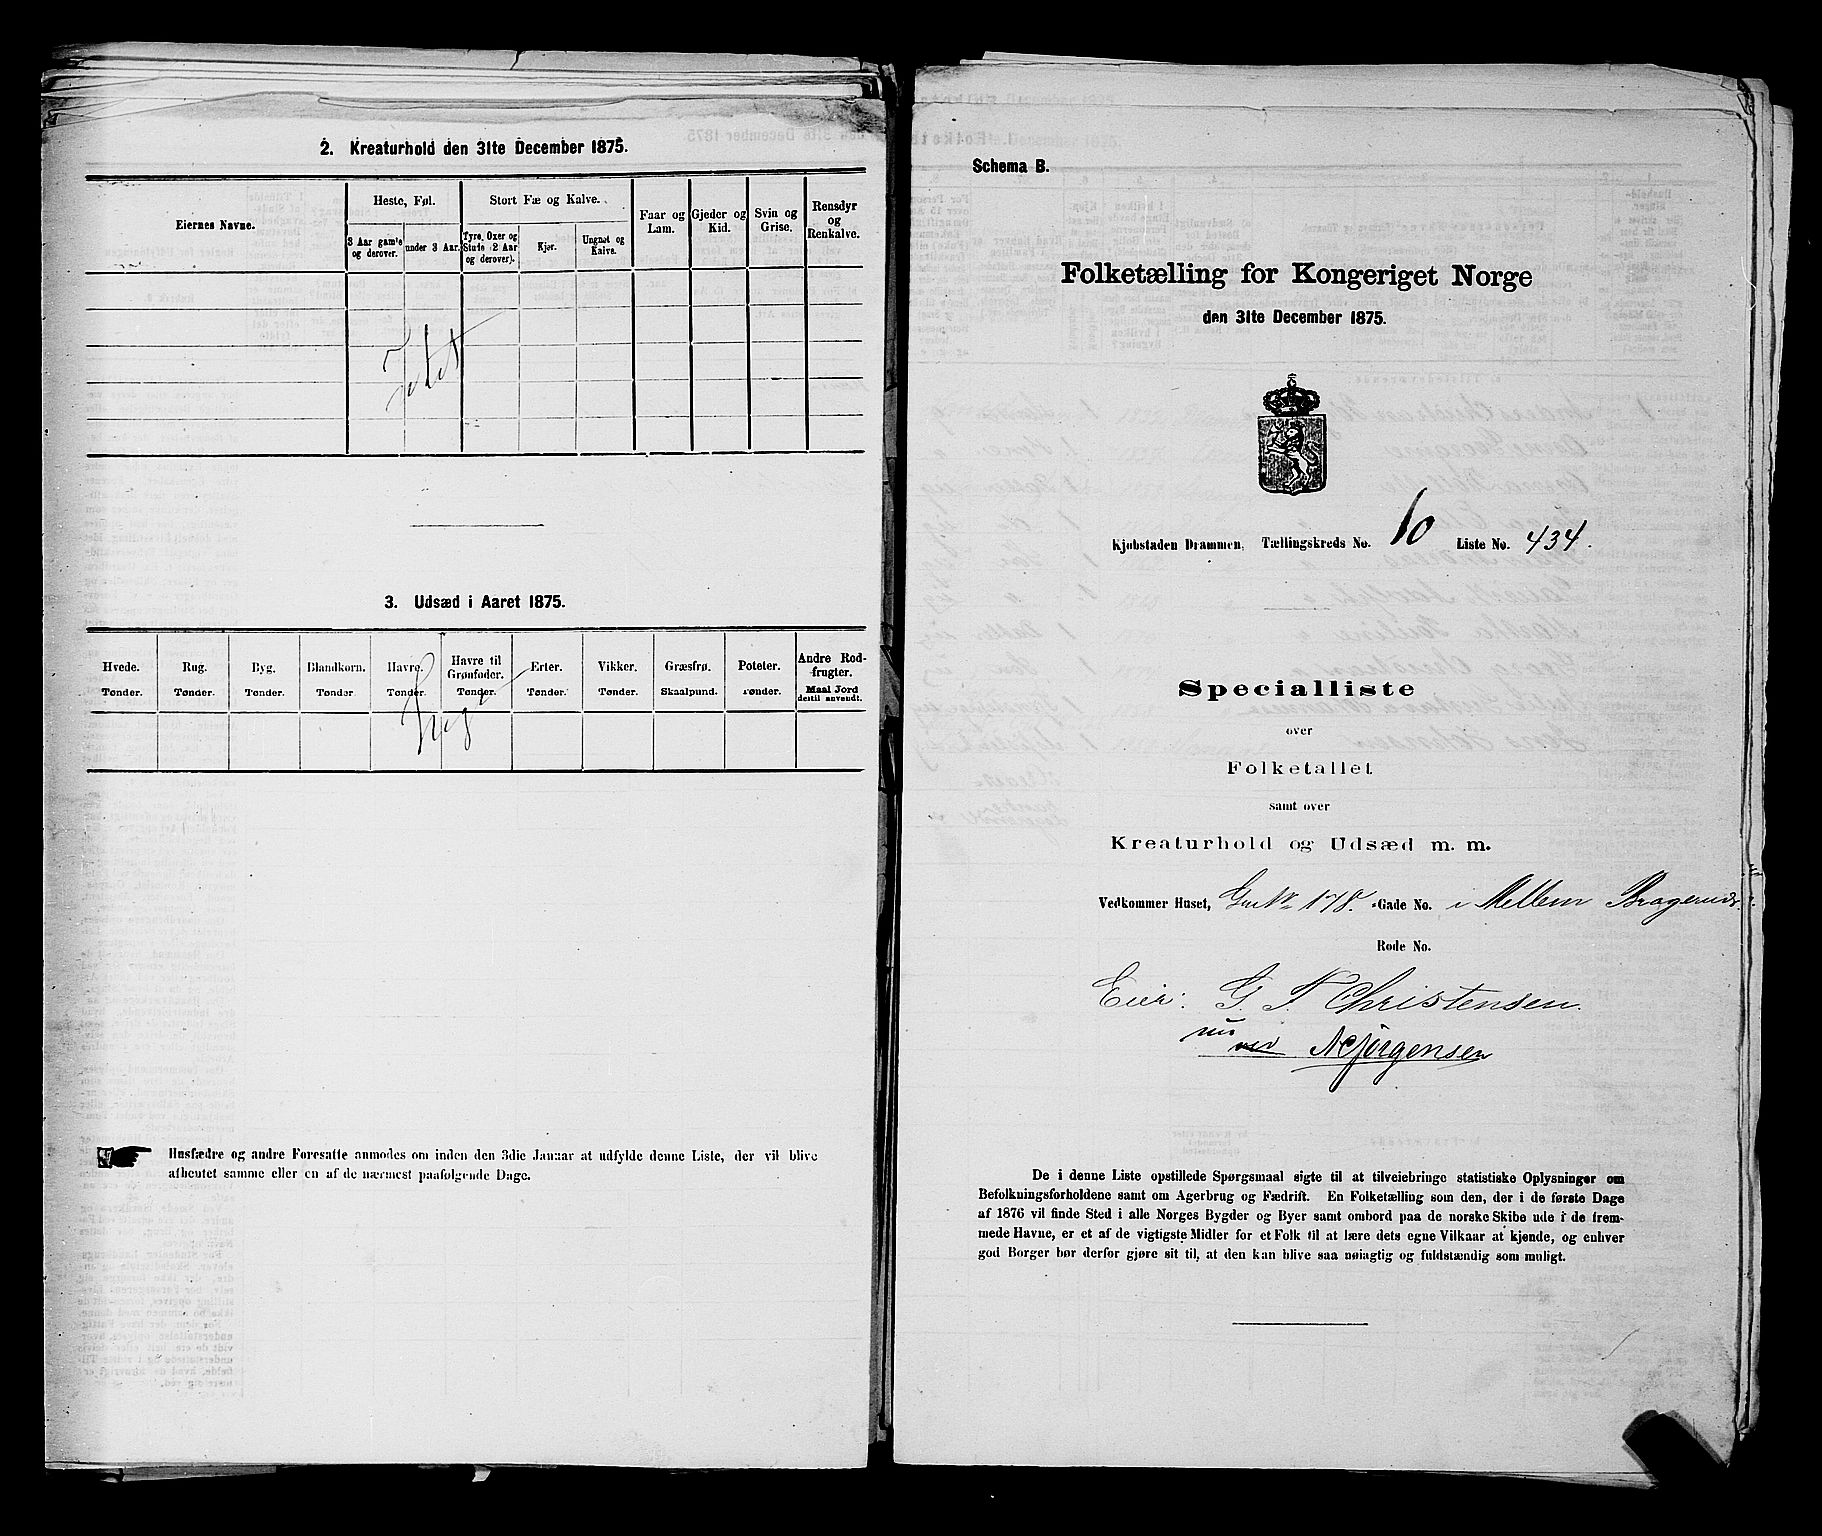 2. Kreaturhold den 31te December 1875.
Eiernes Navne.
Heste, Føl.
Stort Fæ og Kalve.
Faar og Lam.
Gjeder og Kid.
Svin og Grise.
Rensdyr og Renkalve.
3 Aar gamle og derover.
under 3 Aar.
Tyre, Oxer og Stude (2 Aar og derover).
Kjør.
Ungnøt og Kalve.
Intet
3. Udsæd i Aaret 1875.
Hvede. Rug. Byg. Blandkorn. Havre. Havre til Grønfoder. Erter. Vikker. Græsfrø. Poteter. Andre Rodfrugter.
Tønder. Tønder. Tønder. Tønder Tønder. Tønder. Tønder. Tønder. Skaalpund. Tønder. Maal Jord dertil anvendt.
Husfædre og andre Foresatte anmodes om inden den 3die Januar at udfylde denne Liste, der vil blive
afhentet samme eller en af de nærmest paafølgende Dage.
Schema B.
Folketælling for Kongeriget Norge
den 31te December 1875.
Kjøbstaden Drammen, Tællingskreds No. 10 Liste No. 434.
Specialliste
over
Folketallet
samt over
Kreaturhold og Udsæd m. m.
Vedkommer Huset, 178. -Gade No. i Mellem Bragernes
Rode No.
Eier: G. F. Christensen.
nu
Jørgensen
De i denne Liste opstillede Spørgsmaal sigte til at tilveiebringe statistiske Oplysninger om
Befolkningsforholdene samt om Agerbrug og Fædrift. En Folketælling som den, der i de første Dage
af 1876 vil finde Sted i alle Norges Bygder og Byer samt ombord paa de norske Skibe ude i de frem-
mede Havne, er et af de vigtigste Midler for et Folk til at lære dets egne Vilkaar at kjende, og enhver
god Borger bør derfor gjøre sit til, at den kan blive saa nøiagtig og fuldstændig som muligt.